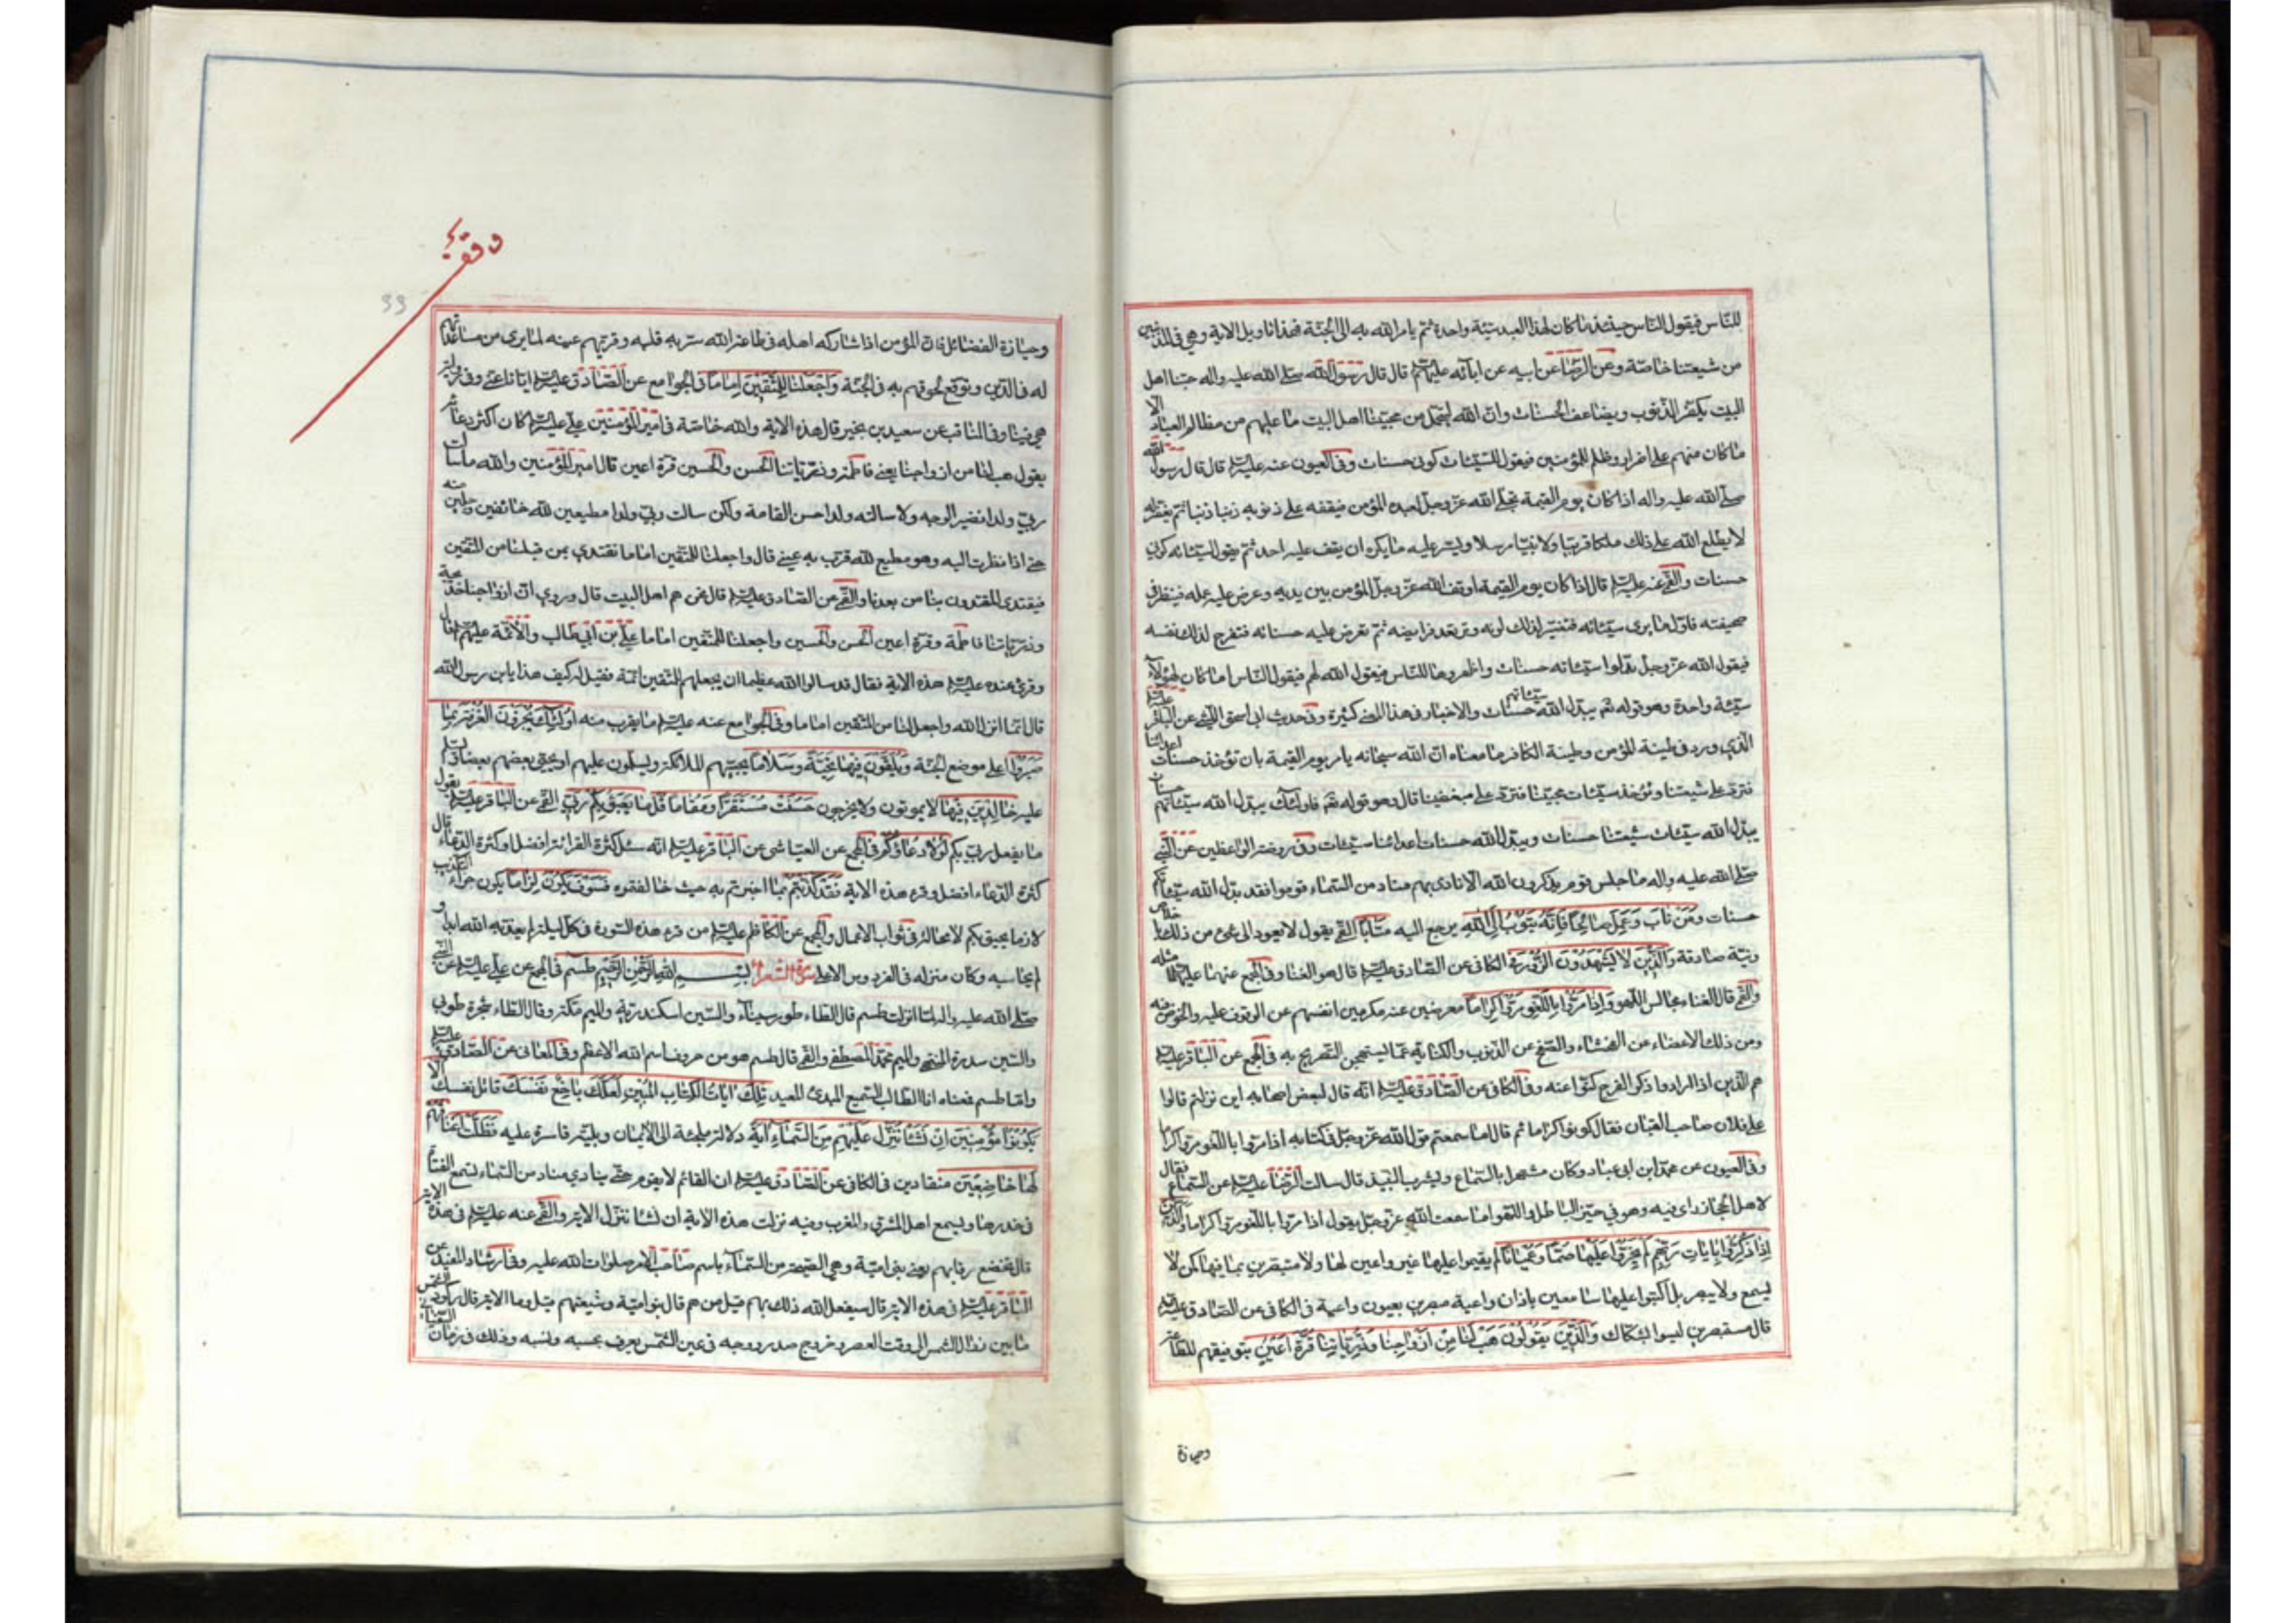 للناس فيقول الناس حينئذ ما كان لهذا العبد سيئة واحدة ثم يامر الله به الى الجنة فهذا تاويل الاية وهي في المذنبين
من شيعتنا خاصة وعن الرضا عن ابيه عن ابائه عليهم قال قال رسول الله صلى الله عليه واله حبنا اهل
البيت يكفر الذنوب ويضاعف الحسنات وان الله ليتحمل من محبينا اهل البيت ما عليهم من مظالم العباد الا
ما كان منهم على اضرار وظلم للمؤمنين فيقول للسيئات كوني حسنات وفي العيون عنه عليه السلم قال قال رسول الله
صلى الله عليه واله اذا كان يوم القيمة تجلى الله عز وجل لعبده المؤمن فيقفه على ذنوبه ذنبا ذنبا ثم يغفر له
لا يطلع الله على ذلك ملكا قربا ولا نبيا مرسلا ويستر عليه ما يكره ان يقف عليه احد ثم يقول لسيئاته كوني
حسنات والقمي عنه عليه السلم قال اذا كان يوم القيمة اوقف الله عز وجل المؤمن بين يديه وعرض عليه عمله فينظر في
صحيفته فاول ما يرى سيئاته فتغير لذلك لونه وترتعد فرايصه ثم تعرض عليه حسناته فتفرح لذلك نفسه
فيقول الله عز وجل بدلوا سيئاته حسنات واظهروها للناس فيبدل الله لهم فيقول الناس اما كان لهؤلاء
سيئة واحدة وهو قوله تعم يبدل الله سيئاتهم حسنات والاخبار في هذا المعنى كثيرة وفي حديث ابي اسحق الليثي عن الباقر عليه السلم
الذي ورد في طينة المؤمن وطينة الكافر ما معناه ان الله سبحانه يامر يوم القيمة بان تؤخذ حسنات اعدائنا
فترد على شيعتنا وتؤخذ سيئات محبينا فترد على مبغضينا قال وهو قوله تعم فاولئك يبدل الله سيئاتهم حسنات
يبدل الله سيئات شيعتنا حسنات ويبدل الله حسنات اعدائنا سيئات وفي روضة الواعظين عن النبي
صلى الله عليه واله ما جلس قوم يذكرون الله الا نادى بهم مناد من السماء قوموا فقد بدل الله سيئاتكم
حسنات ومن تاب وعمل صالحا فانه يتوب الى الله يرجع اليه متابا القمي يقول لا يعود الى شئ من ذلك باخلاص
ونية صادقة والذين لا يشهدون الزور في الكافي عن الصادق عليه السلم قال هو الغنا وفي المجمع عنهما عليهما مثله
والقمي قال الغناء ومجالس اللهو واذا مروا باللغو مروا كراما معرضين عنه مكرمين انفسهم عن الوقوف عليه والخوض فيه
ومن ذلك الاغضاء عن الفحشاء والصفح عن الذنوب والكناية عما يستهجن التصريح به في المجمع عن الباقر عليه السلم
هم الذين اذا ارادوا ذكر الفرج كنوا عنه وفي الكافي عن الصادق عليه السلم انه قال لبعض اصحابه اين نزلتم قالوا
على فلان صاحب القيان فقال كونوا كراما ثم قال اما سمعتم قول الله عز وجل في كتابه اذا مروا باللغو مروا كراما
وفي العيون عن محمد ابن ابي عباد وكان مشتهرا بالسماع ويشرب النبيذ قال سالت الرضا عليه السلم عن السماع فقال
لاهل الحجاز راى فيه وهو في حيز الباطل واللهو اما سمعت الله عز وجل يقول اذا مروا باللغو مروا كراما والذين
اذا ذكروا بايات ربهم لم يخروا عليها صما وعميانا لم يقيموا عليها غير واعين لها ولا متبصرين بما فيها كمن لا
يسمع ولا يبصر بل اكبوا عليها سامعين باذان واعية مبصرين بعيون راعية في الكافي عن الصادق عليه السلم
قال مستبصرين ليسوا بشكاك والذين يقولون هب لنا من ازواجنا وذرياتنا قرة اعين بتوفيقهم للطاعة
وحيازة
وقف
33
وحيازة الفضائل فان المؤمن اذا شاركه اهله في طاعة الله سر به قلبه وقر بهم عينه لما يرى من مساعدتهم
له في الدين وتوقع لحوقهم به في الجنة واجعلنا للمتقين اماما في الجوامع عن الصادق عليه السلم ايانا عنى وفي رواية
هي فينا وفي المناقب عن سعيد بن جبير قال هذه الاية والله خاصة في امير المؤمنين علي عليه السلم كان اكثر دعائه
يقول هب لنا من ازواجنا يعني فاطمة وذرياتنا الحسن والحسين قرة اعين قال امير المؤمنين والله ما سالت
ربي ولدا نضير الوجه ولا سالته ولدا حسن القامة ولكن سالت ربي ولدا مطيعين لله خائفين وجلين منه
حتى اذا نظرت اليه وهو مطيع لله قرت به عيني قال واجعلنا للمتقين اماما نقتدي بمن قبلنا من المتقين
فيقتدى المقتدون بنا من بعدنا والقمي عن الصادق عليه السلم قال نحن هم اهل البيت قال وروي ان ازواجنا خديجة
وذرياتنا فاطمة وقرة اعين الحسن والحسين واجعلنا للمتقين اماما علي بن ابي طالب والائمة عليهم السلم قال
وقرئ عنده عليه السلم هذه الاية فقال قد سالوا الله عظيما ان يجعلهم للمتقين ائمة فقيل له كيف هذا يابن رسول الله
قال انما انزل الله واجعل لنا من المتقين اماما وفي الجوامع عنه عليه السلم ما يقرب منه اولئك يجزون الغرفة بما
صبروا اعلى موضع الجنة ويلقون فيها تحية وسلاما يحييهم الملائكة ويسلمون عليهم او يحيي بعضهم بعضا ويسلم
عليه خالدين فيها لا يموتون ولا يخرجون حسنت مستقرا ومقاما قل ما يعبؤ بكم ربي القمي عن الباقر عليه السلم يقول
ما يفعل ربي بكم لولا دعاؤكم في المجمع عن العياشي عن الباقر عليه السلم انه سئل كثرة القرائة افضل او كثرة الدعاء قال
كثرة الدعاء افضل وقرء هذه الاية فقد كذبتم بما اخبرتم به حيث خالفتموه فسوف يكون لزاما يكون جزاء التكذيب
لازما يحيق بكم لا محالة في ثواب الاعمال والمجمع عن الكاظم عليه السلم من قرء هذه السورة في كل ليلة لم يعذبه الله ابدا و
لم يحاسبه وكان منزله في الفردوس الاعلى سورة الشعراء بسم الله الرحمن الرحيم طسم في المجمع عن علي عليه السلم عن النبي
صلى الله عليه واله لما انزلت طسم قال الطاء طور سيناء والسين اسكندرية والميم مكة وقال الطاء شجرة طوبى
والسين سدرة المنتهى والميم محمد المصطفى والقمي قال طسم هو من حروف اسم الله الاعظم وفي المعاني عن الصادق عليه السلم
واما طسم فمعناه انا الطالب السميع المبدئ المعيد تلك ايات الكتاب المبين لعلك باخع نفسك قاتل نفسك الا
يكونوا مؤمنين ان نشا ننزل عليهم من السماء اية دلالة ملجئة الى الايمان وبلية قاسرة عليه فظلت اعناقهم
لها خاضعين منقادين في الكافي عن الصادق عليه السلم ان القائم لا يقوم حتى ينادي مناد من السماء تسمع الفتاة
في خدرها ويسمع اهل المشرق والمغرب وفيه نزلت هذه الاية ان نشا ننزل الاية والقمي عنه عليه السلم في هذه الاية
قال تخضع رقابهم يعني بني امية وهي الصيحة من السماء باسم صاحب الامر صلوات الله عليه وفي ارشاد المفيد عن
الباقر عليه السلم في هذه الاية قال سيفعل الله ذلك بهم قيل من هم قال بنو امية وشيعتهم قيل وما الاية قال ركود الشمس
ما بين زوال الشمس الى وقت العصر وخروج صدر ووجه في عين الشمس يعرف بحسبه ونسبه وذلك في زمان السفياني